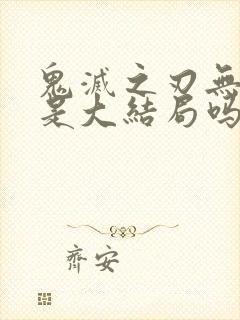 鬼滅之刃無
是大結局嗎
齊安